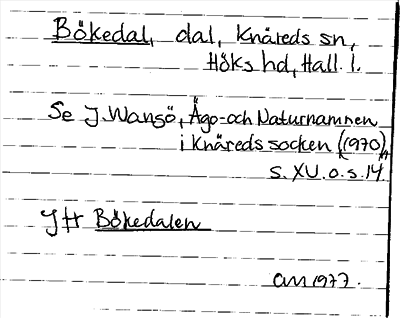 Bökedal, dal, Knäreds sn,
Höks hd, Hall. l.
Se J. Wansö, Ägo- och Naturnamnen
i Knäreds socken (1970),
s. XV. o. s. 14.
Jfr Bökedalen
am 1977.